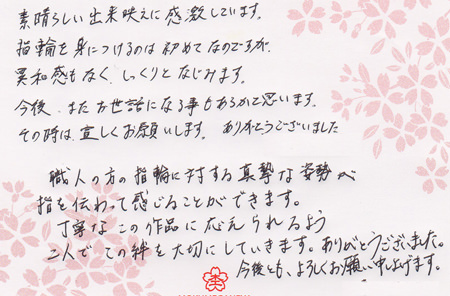 素晴らしい出来映えに感激しています。
指輪を身につけるのは初めてなのですが、
異和感もなく、しっくりとなじみます。
今後、またお世話になる事もあるかと思います。
その時は、宜しくお願いします。ありがとうございました
職人の方の指輪に対する真摯な姿勢が
指を伝わって感じることができます。
丁寧なこの作品に応えられるよう
二人でこの絆を大切にしていきます。ありがとうございました。
今後とも、よろしくお願い申し上げます。